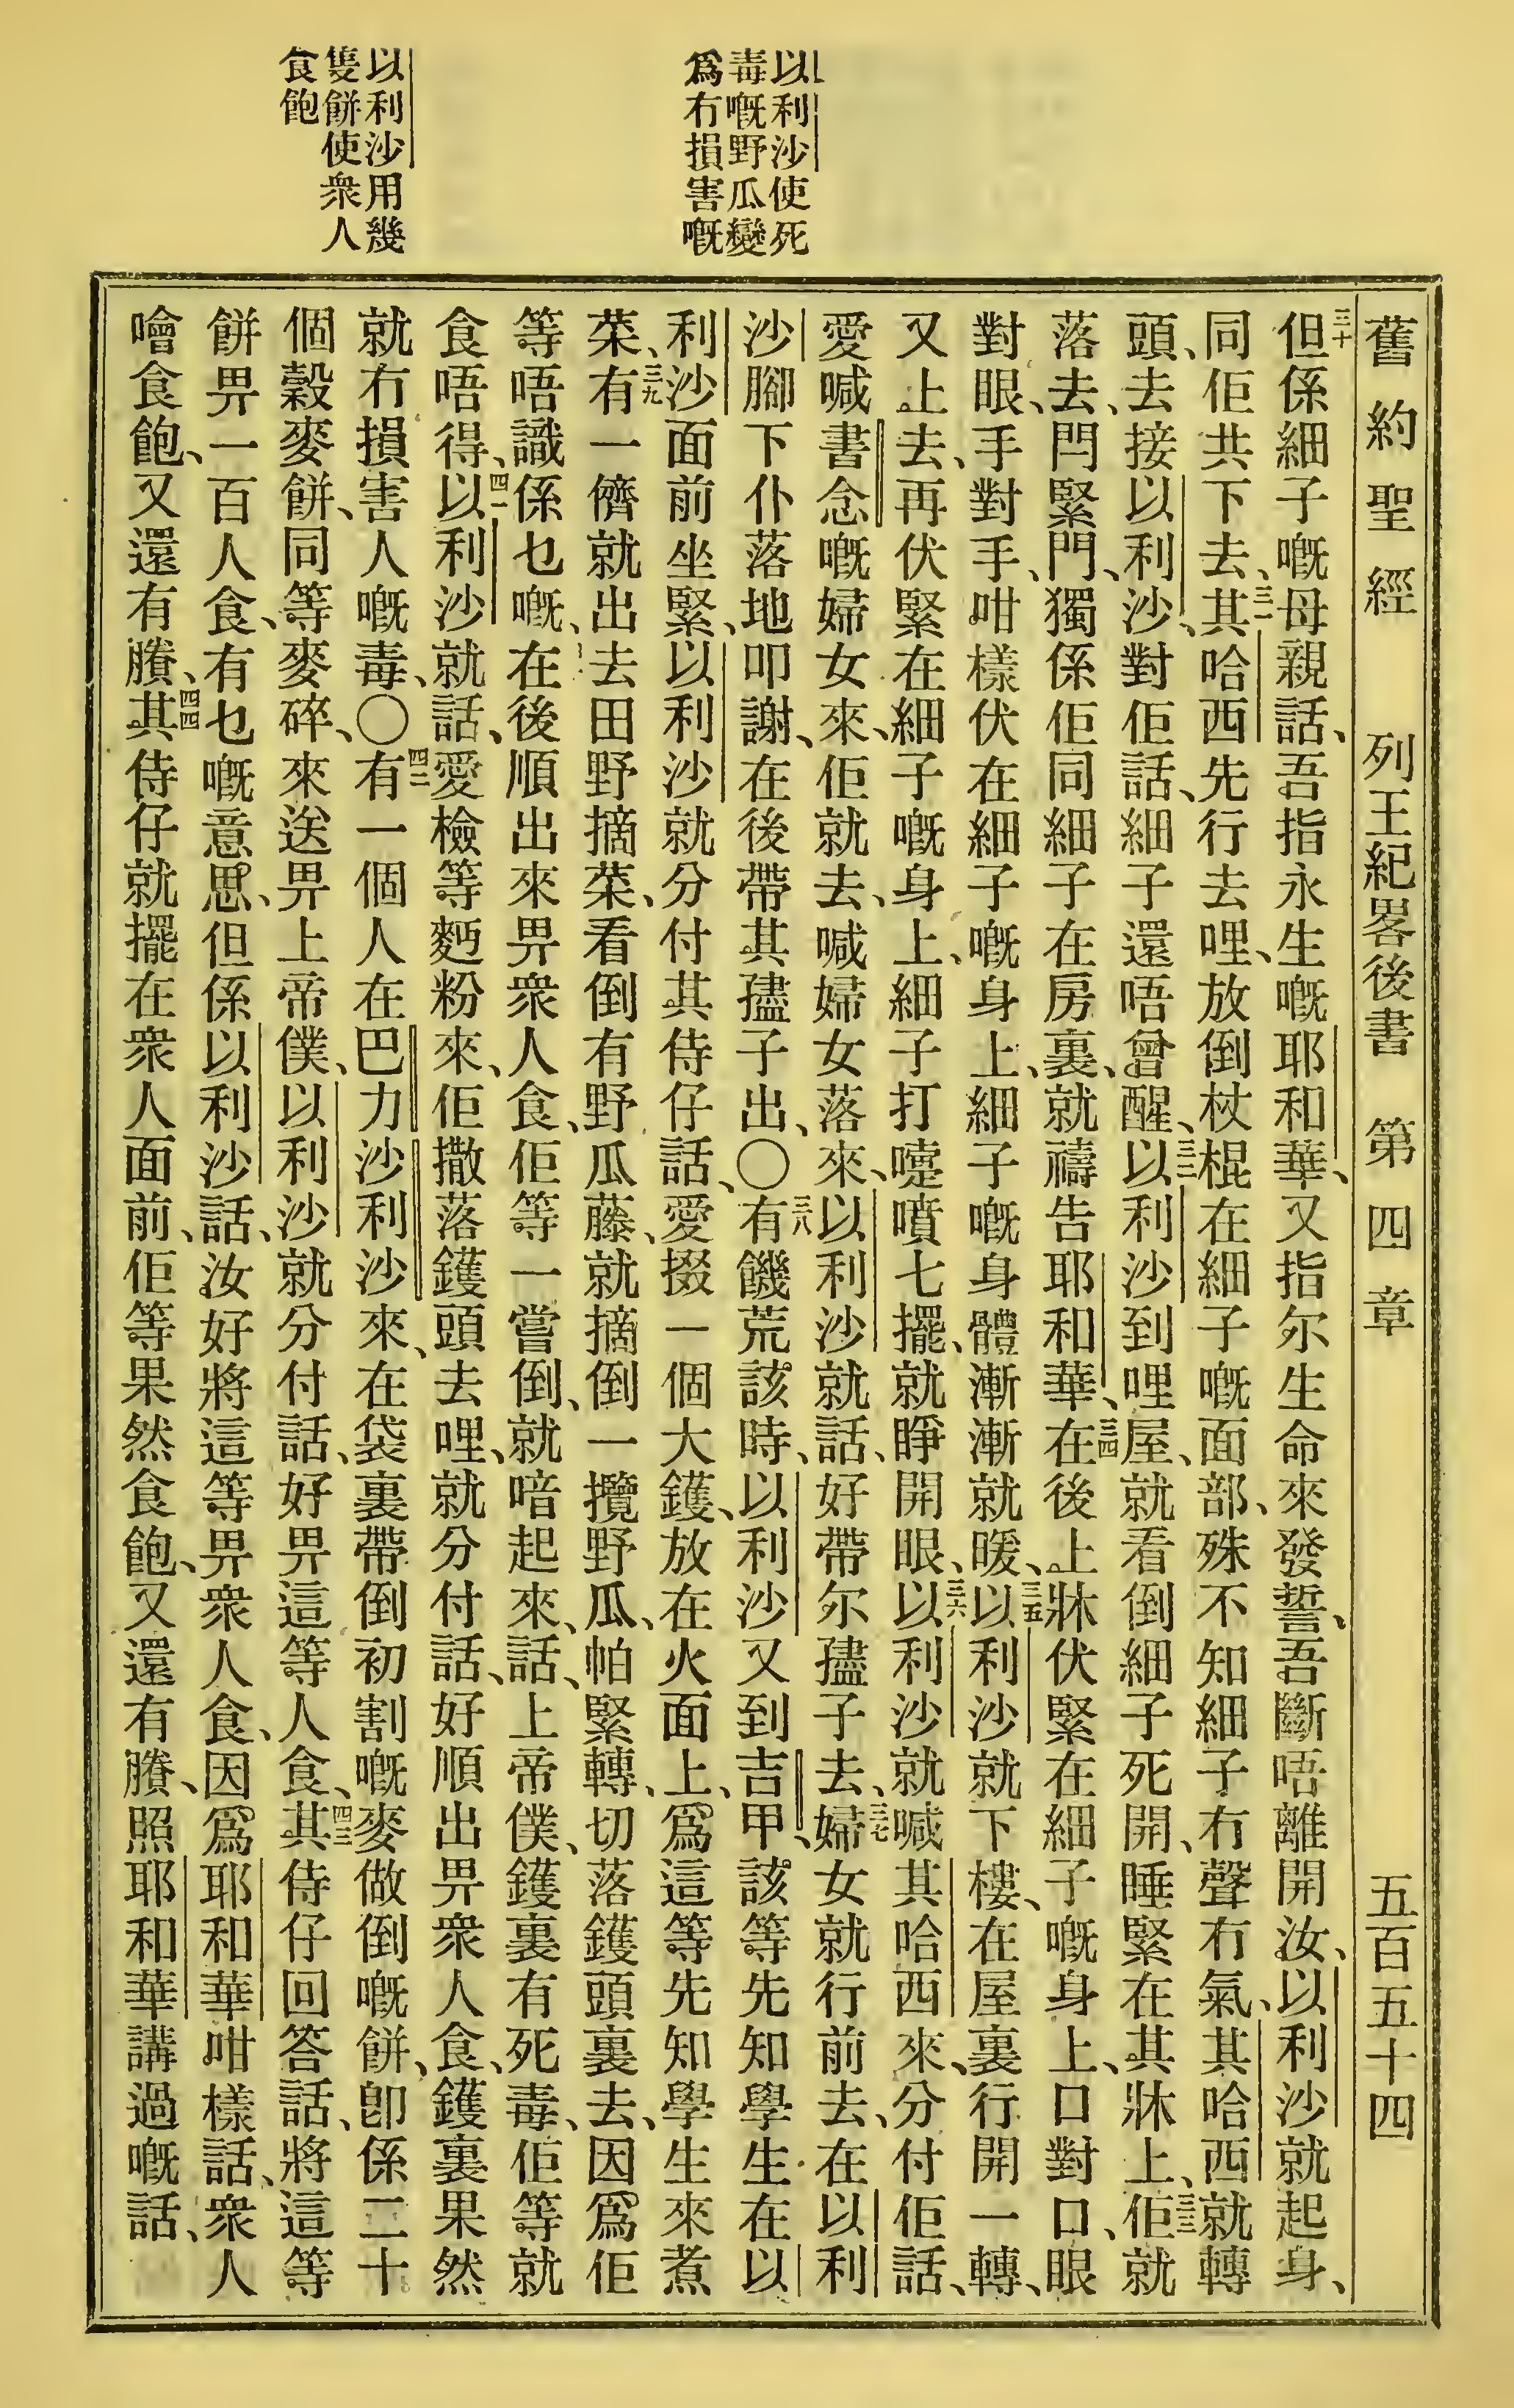 以利沙使死
毒嘅野瓜變
爲冇損害嘅
以利沙用幾
隻餅使衆人
食飽
舊約聖經　列王紀畧後書　第四章　五百五十四
三十但係細子嘅母親話、吾指永生嘅耶和華、又指尔生命來發誓、吾斷唔離開汝、以利沙就起身、
同佢共下去、三一其哈西先行去哩、放倒杖棍在細子嘅面部、殊不知細子冇聲冇氣、其哈西就轉
頭、去接以利沙、對佢話、細子還唔曾醒、三二以利沙到哩屋、就看倒細子死開、睡緊在其牀上、三三佢就
落去、閂緊門、獨係佢同細子在房裏、就禱告耶和華、三四在後上牀伏緊在細子嘅身上、口對口、眼
對眼、手對手、咁樣伏在細子嘅身上、細子嘅身體漸漸就暖、三五以利沙就下樓、在屋裏行開一轉、
又上去、再伏緊在細子嘅身上、細子打嚏噴七擺、就睜開眼、三六以利沙就喊其哈西來、分付佢話、
愛喊書念嘅婦女來、佢就去、喊婦女落來、以利沙就話、好帶尔孻子去、三七婦女就行前去、在以利
沙腳下仆落地叩謝、在後帶其孻子出、〇三八有饑荒該時、以利沙又到吉甲、該等先知學生在以
利沙面前坐緊、以利沙就分付其侍仔話、愛掇一個大鑊、放在火面上、爲這等先知學生來煮
菜、三九有一儕就出去田野摘菜、看倒有野瓜藤、就摘倒一攬野瓜、帕緊轉、切落鑊頭裏去、因爲佢
等唔識係乜嘅、在後順出來畀衆人食、佢等一嘗倒、就喑起來、話、上帝僕、鑊裏有死毒、佢等就
食唔得、四一以利沙就話、愛檢等麪粉來、佢撒落鑊頭去哩、就分付話、好順出畀衆人食、鑊裏果然
就冇損害人嘅毒、〇四二有一個人在巴力沙利沙來、在袋裏帶倒初割嘅麥做倒嘅餅、卽係二十
個穀麥餅、同等麥碎、來送畀上帝僕、以利沙就分付話、好畀這等人食、四三其侍仔回答話、將這等
餅畀一百人食、有乜嘅意思、但係以利沙話、汝好將這等畀衆人食、因爲耶和華咁樣話、衆人
噲食飽、又還有賸、四四其侍仔就擺在衆人面前、佢等果然食飽、又還有賸、照耶和華講過嘅話、